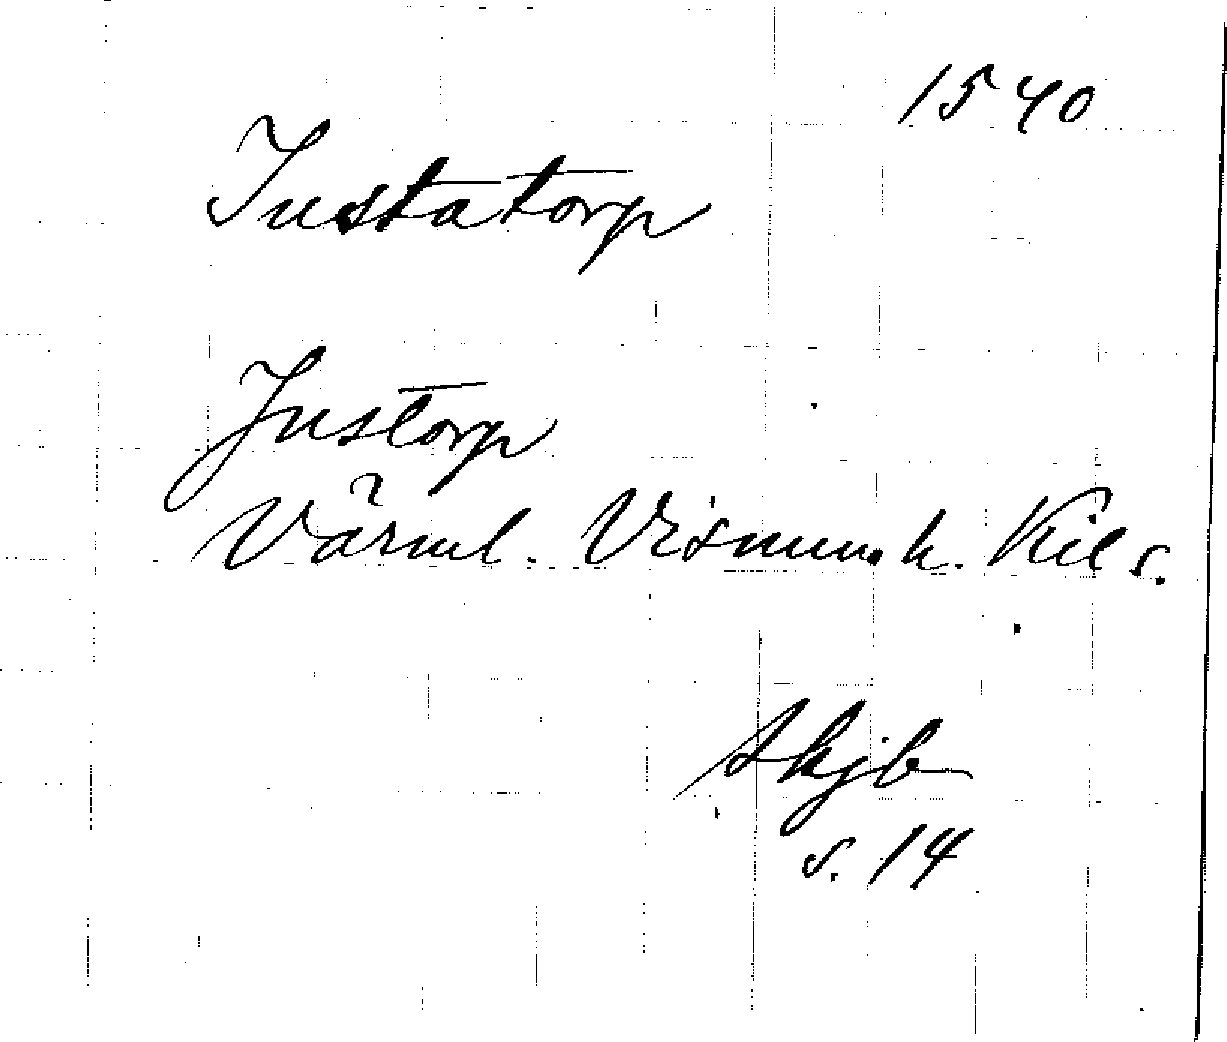 1540
Justatorp
Justorp
Värml. Visnum. h. Kil s.
skjb
s. 14